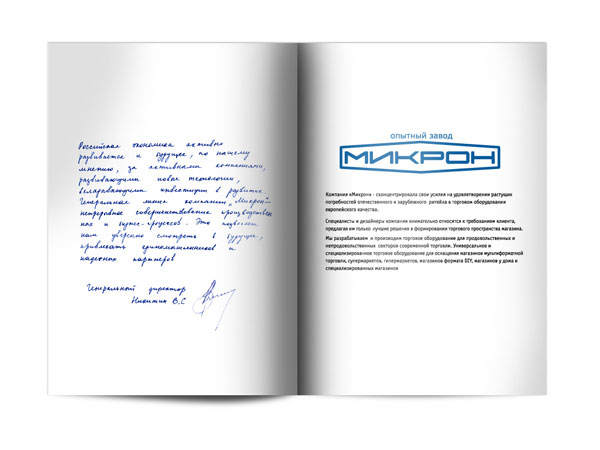 Российская экономика активно
развивается и будущее, по нашему
мнению, за активными компаниями,
развивающими новые технологии,
вкладывающими инвестиции в развитие.
Генеральная линия компании "Микрон"-
непрерывное совершенствование производствен
ных и бизнес-процессов. Это позволяет
нам уверенно смотреть в будущее,
привлекать единомышленников и
надежных партнеров
Генеральный директор
Никитин В.С
опытный завод
МИКРОН
Компания «Микрон» - сконцентрировала свои усилия на удовлетворении растущих
потребностей отечественного и зарубежного ритейла в торговом оборудовании
европейского качества.
Специалисты и дизайнеры компании внимательно относятся к требованиям клиента,
предлагая им только лучшие решения в формировании торгового пространства магазина.
Мы разрабатываем и производим торговое оборудование для продовольственных и
непродовольственных секторов современной торговли. Универсальное и
специализированное торговое оборудование для оснащения магазинов мультиформатной
торговли, супермаркетов, гипермаркетов, магазинов формата DIY, магазинов у дома и
специализированных магазинов